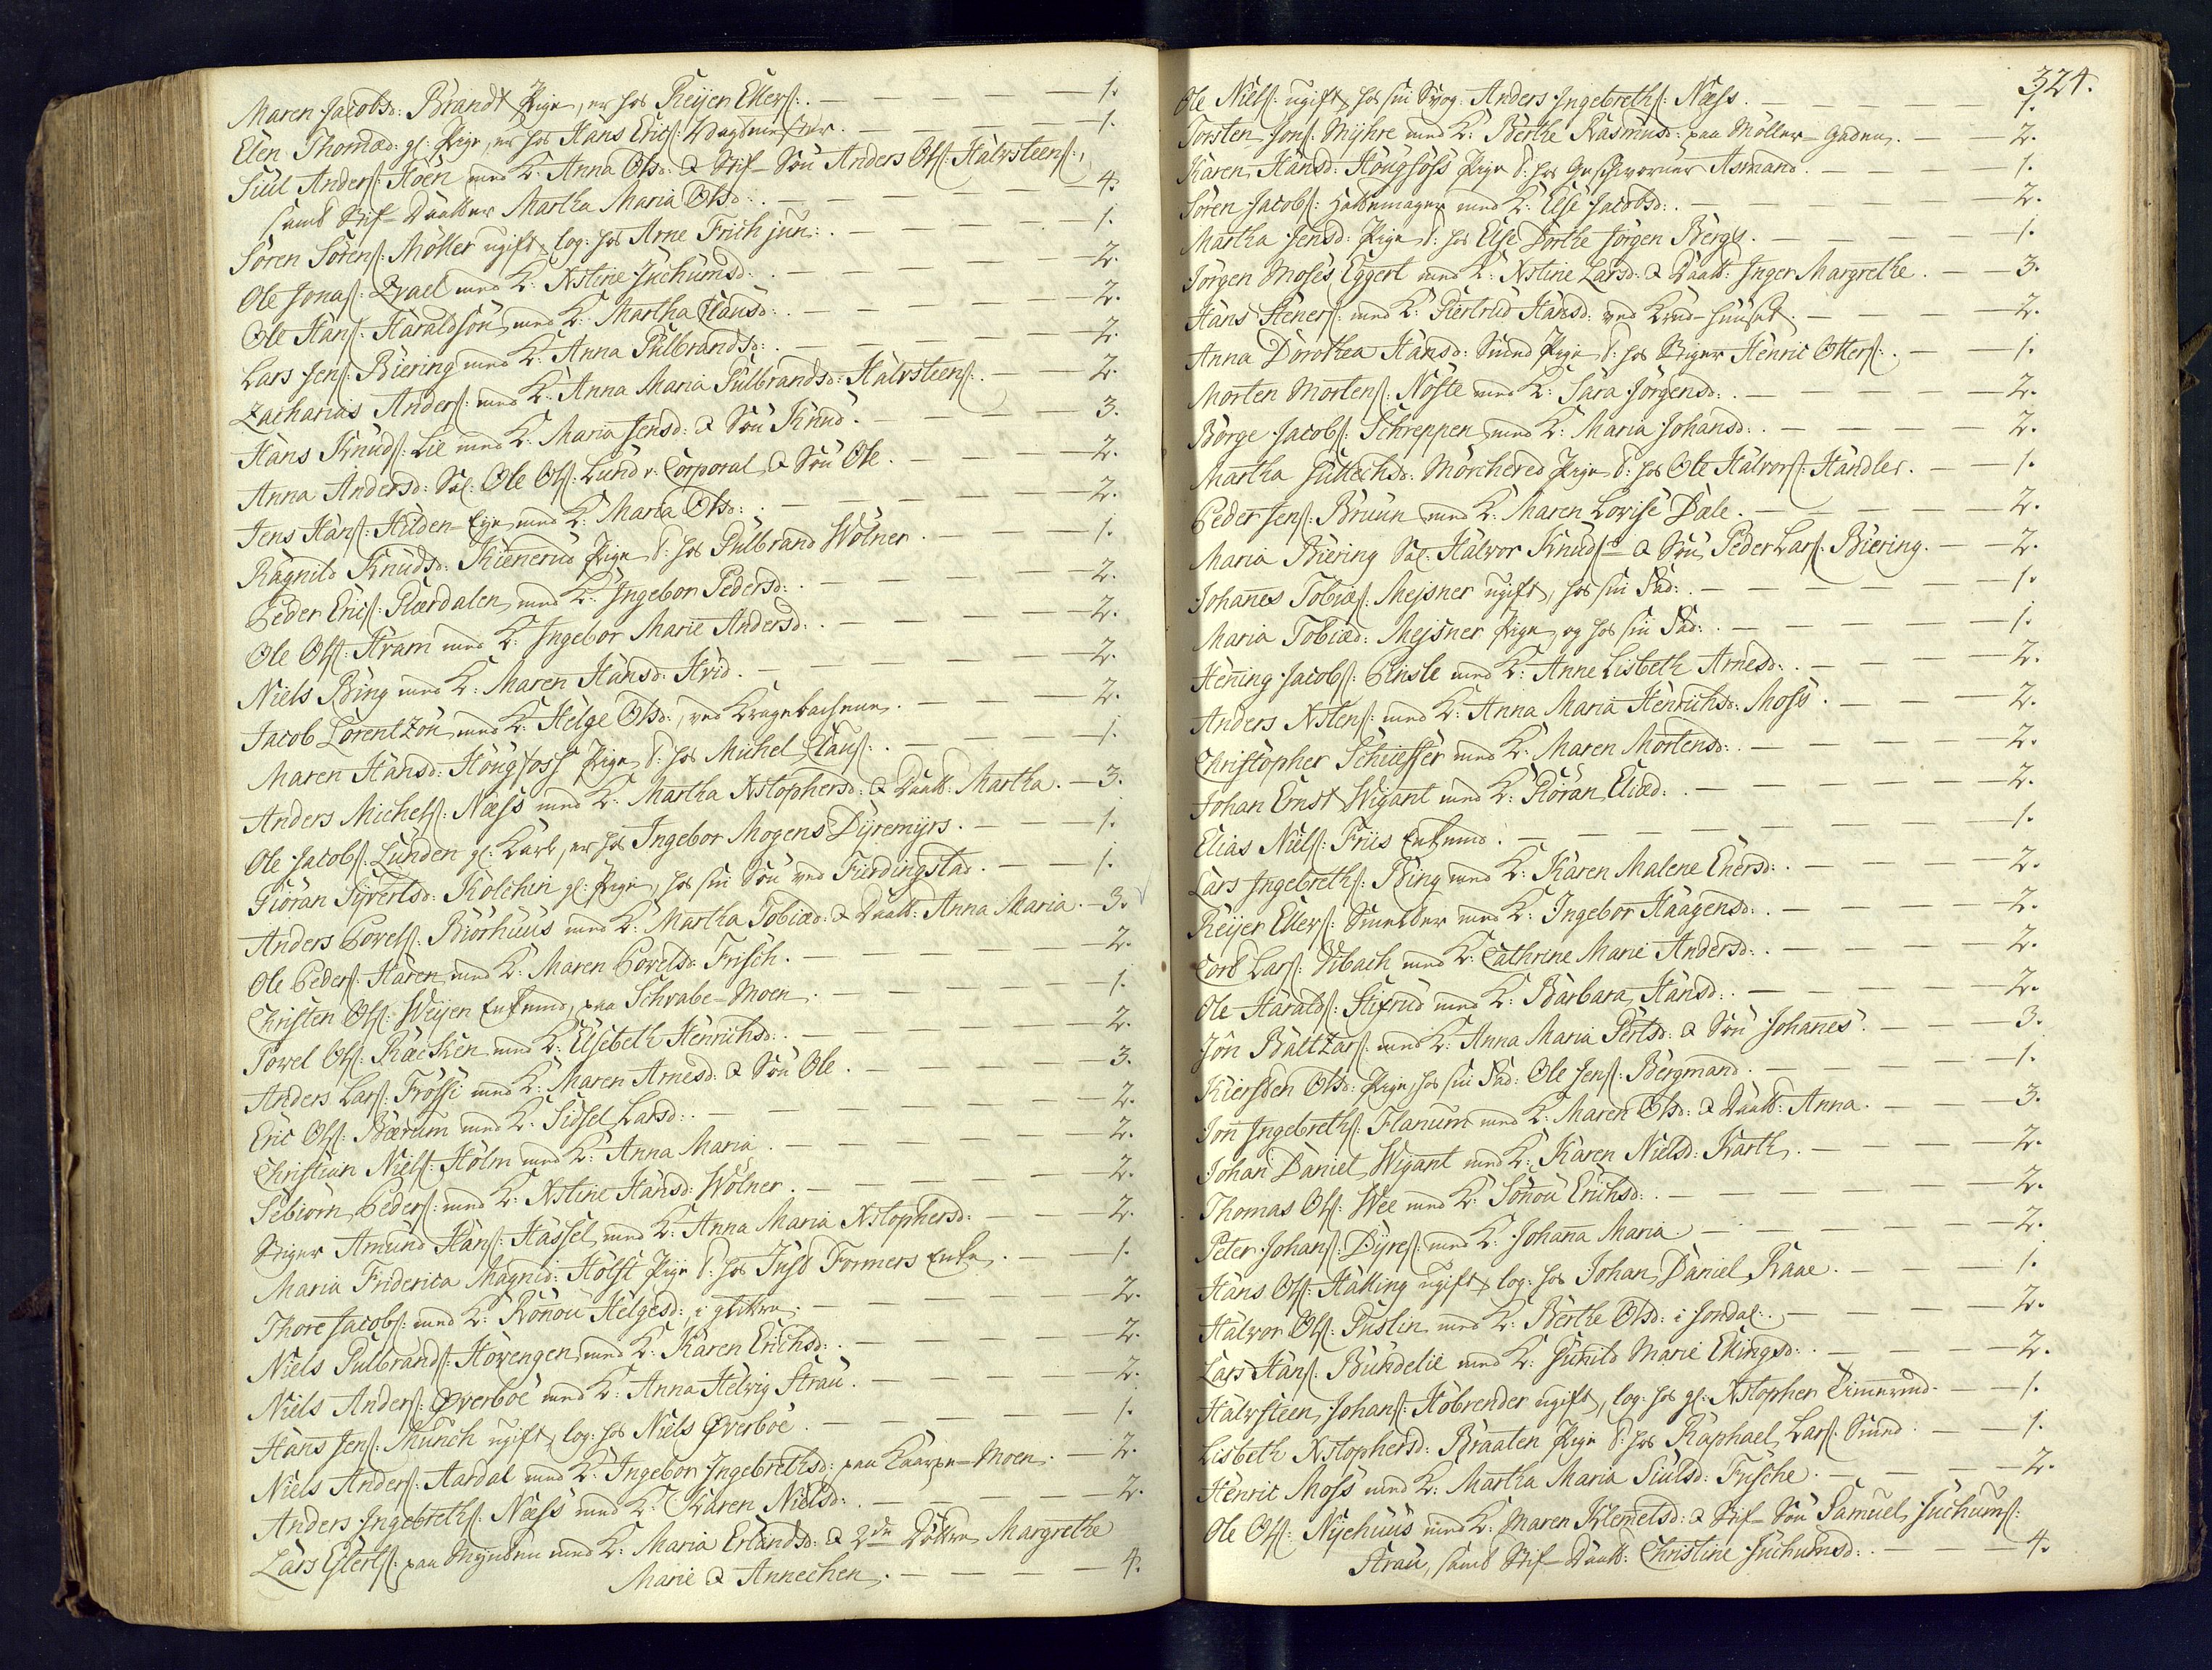 Maren Jacobsd: Brandt Pige, er hos Reijer Ellers: . — 1.
Elen Thomæd: gl: Pige, er hos Hans Erics: Wagtmester. — 1.
Siul Anders: Hoen med K: Anna Olsd: & Stif-Søn Anders Ols: Halvsteens:,
samt Stif-Daatter Martha Maria Olsd: . — 4.
Sören Sörens: Möller ugift, log: hos Arne Frich jun: . — 1.
Ole Jonas: Zrael med K: Xstine Juchumsd: . — 2.
Ole Hans: Haraldsön med K: Martha Clausd: . — 2.
Lars Jens: Biering med K: Anna Gulbrandsd: . — 2.
Zacharias Anders: med K: Anna Maria Gulbrandsd: Halvsteens: . — 2.
Hans Knuds: Lie med K: Maria Jensd: & Søn Knud. — 3.
Anna Andersd: Sal: Ole Ols: Lund v. Corporal & Søn Ole. — 2.
Jens Hans: Hilden-Eje med K: Maria Olsd: . — 2.
Ragnild Knudsd: Kienerud Pige t: hos Gulbrand Wölner. — 1.
Peder Erics: Flærdalen med K: Ingebor Pedersd: . — 2.
Ole Ols: Hvam med K: Ingebor Marie Andersd: . — 2.
Niels Bing med K: Maren Hansd: Hvid. — 2.
Jacob Lorentzön med K: Helge Olsd:, ved Kragebachene. — 2.
Maren Hansd: Hougsoss Pige t: hos Michel Claus: . — 1.
Anders Michels: Næss med K: Martha Xstophersd: & Daatt: Martha. — 3.
Ole Jacobs: Lunden gl: Karl, er hos Ingebor Mogens Dÿremÿrs. — 1.
Giöran Sÿvertsd: Kolchin gl: Pige, hos sin Søn ved Fuldingstad. — 1.
Anders Povels: Biörhuus med K: Martha Tobiæd: & Daatt: Anna Maria. — 3.
Ole Peders: Haren med K: Maren Povelsd: Frisch. — 2.
Christen Ols: Weijen Enkemd, paa Schrabe-Moen. — 1.
Powel Ols: Ræcken med K: Elsebeth Henrichsd: . — 2.
Anders Lars: Frössi med K: Maren Arnesd: & Søn Ole. — 3.
Eric Ols: Bærum med K: Sidsel Larsd: . — 2.
Christian Niels: Holm med K: Anna Maria. — 2.
Sebiörn Peders: med K: Xstine Hansd: Wölner. — 2.
Stiger Amund Hans: Hassel med K: Anna Maria Xstophersd: — 2.
Maria Friderica Magnid: Holst Pige t: hos Just Formers Enke. — 1.
Thore Jacobs: med K: Rönou Helgesd: i — 2.
Niels Gulbrands: Hovengen med K: Karen Erichsd: . — 2.
Niels Anders: Øverböe med K: Anna Helvig Strau. — 2.
Hans Jens: Munch ugift, log: hos Niels Øverböe. — 1.
Niels Anders: Aardal med K: Ingebor Ingebrethsd: paa Kaarpe-Moen. — 2.
Anders Ingebreths: Næss med K: Karen Nielsd: . — 2.
Lars Eylerts: paa Mÿnten med K: Maria Erlandsd: & 2de Döttre Margrethe
Marie & Annechen. — 4.
324.
Ole Niels: ugift, hos sin Svog: Anders Ingebreths: Næss. — 1.
Torsten Jons: Mÿhre med K: Berthe Rasmusd: paa Möller-Gaden. — 2.
Karen Hansd: Hougsöss Pige t: hos Geschworner Asmand. — 1.
Sören Jacobs: Hattemager med K: Else Jacobsd: . — 2.
Martha Jensd: Pige t: hos Else Dorthe Jörgen Bergs. — 1.
Jörgen Moses Eggert med K: Xstine Larsd: & Daatt: Inger Margrethe. — 3.
Hans Steners: med K: Giertrud Hansd: ved Krud-Huuset. — 2.
Anna Dorothea Hansd: Smed Pige t: hos Stiger Henric Otters: . — 1.
Morten Mortens: Nöste med K: Sara Jörgensd: . — 2.
Börge Jacobs: Schreppen med K: Maria Johansd: . — 2.
Martha Guttechsd: Mörchered Pige t: hos Ole Halvors: Handler. — 1.
Peder Jens: Bruun med K: Maren Lovise Dale. — 2.
Maria Biering Sal: Halvor Knuds: & Søn Peder Lars: Biering. — 2.
Johanes Tobiæs: Mejsner ugift, hos sin Fad: . — 1.
Maria Tobiæd: Mejsner Pige, og hos sin Fad: . — 1.
Hening Jacobs: Elisle med K: Anne Lisbeth Arnesd: . — 2.
Anders Xstens: med K: Anna Maria Henrichsd: Moss. — 2.
Christopher Schiesser med K: Maren Mortensd: . — 2.
Johan Ernst Wigant med K: Giöran Eliæd: . — 2.
Elias Niels: Friis Enkemd. — 1.
Lars Ingebreths: Bing med K: Karen Malene Enersd: . — 2.
Reijer Ellers: Smelter med K: Ingebor Haagensd: . — 2.
Cort Lars: Ribach med K: Cathrine Marie Andersd: . — 2.
Ole Haralds: Stifrud med K: Barbara Hansd: . — 2.
Jön Baltzars: med K: Anna Maria Pertsd: & Søn Johanes. — 3.
Kiersten Olsd: Pige, hos sin Fad: Ole Jens: Bergmand. — 1.
Jon Ingebreths: Flanum med K: Maren Olsd: & Daatt: Anna. — 3.
Johan Daniel Wigant med K: Karen Nielsd: Karth. — 2.
Thomas Ols: Wee med K: Sönou Erichsd: . — 2.
Peter Johans: Dÿres: med K: Johana Maria. — 2.
Hans Ols: Halling ugift, log: hos Johan Daniel Raae. — 1.
Halvor Ols: Puslin med K: Berthe Olsd: i Jondal: . — 2.
Lars Hans: Bundelie med K: Gunild Marie Ellingsd: . — 2.
Halvsteen Johans: Höbrender ugift, log: hos gl: Xstopher Timermd. — 1.
Lisbeth Xstophersd: Braaten Pige t: hos Raphael Lars: Smed. — 1.
Henric Moss med K: Martha Maria Siulsd: Frische. — 2.
Ole Ols: Nÿehuus med K: Maren Klemetsd: & Stif-Søn Samuel Juchums:
Strau, samt Stif-Daatt: Christine Juchumsd: . — 4.